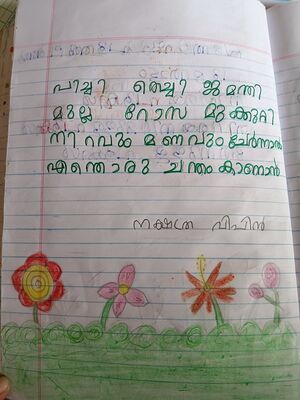 പിച്ചി തെച്ചി ജമന്തി
മുല്ല റോസ മുക്കുറ്റി
നിറവും മണവും ചേർന്നാൽ
എന്തൊരു ചന്തം കാണാൻ
നക്ഷത്ര വിപിൻ